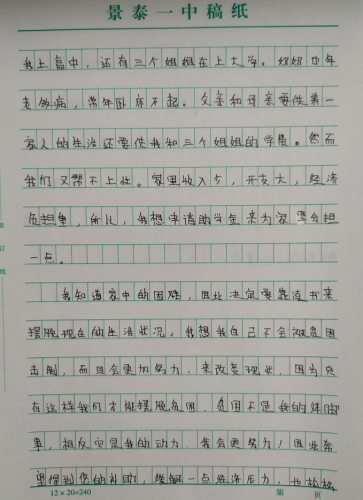 景泰一中稿纸
我上高中，还有三个姐姐在上大学。奶奶中年
老多病，常年卧床不起。父亲和母亲要供养一
家人的生活还要供我和三个姐姐的学费。然而
我们又帮不上忙。家里收入少，开支大，经济
负担重，所以，我想申请助学金来为家里分担
一点。
我知道家中的困难，因此决定要靠读书来
摆脱现在的生活状况，我想我自己不会被贫困
击倒，而且会更加努力，来改变现状，因为只
有这样我们才能摆脱贫困，贫困不是我的绊脚
石，相反它是我的动力，我会更努力！因此希
望得到您的补助，缓解一点经济压力，也
12×20=240
第 页
装
订
线